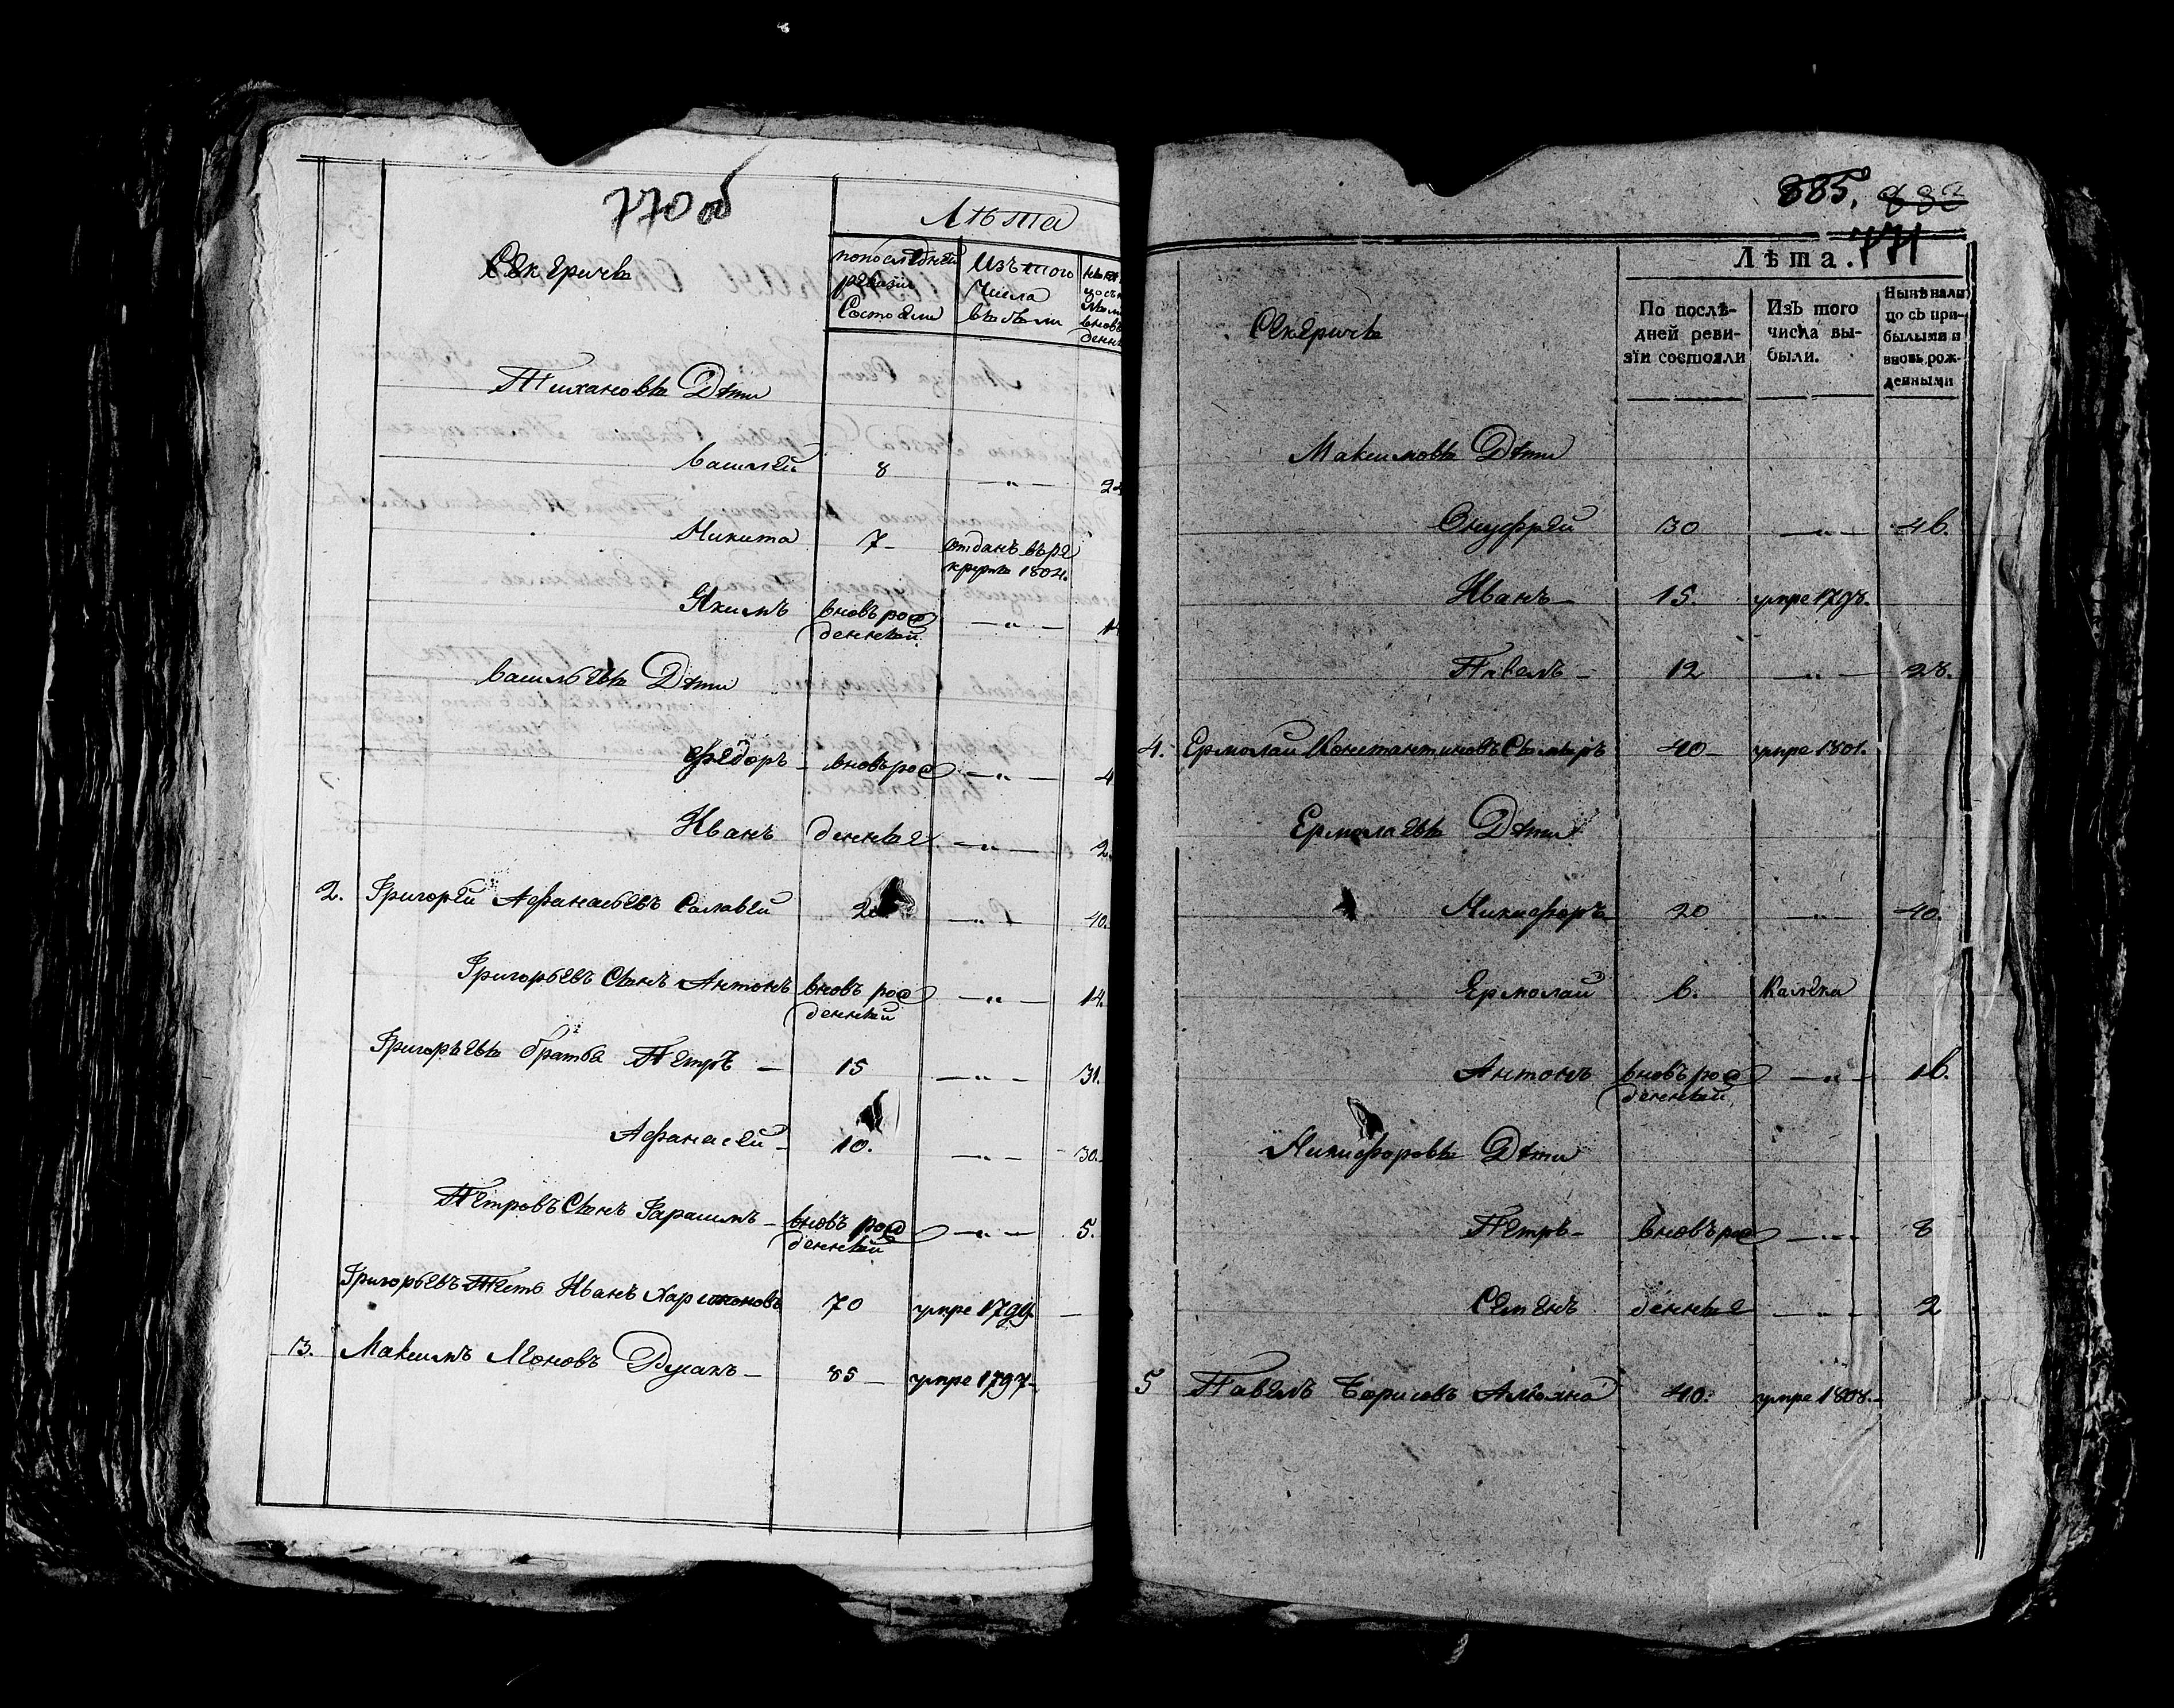 770 об
Лѣта
Секеричи
попоследней
ревизiи
Состояли
Изътого
Числа
выбыли
Тихановы Дѣти
Василей 8 —"— 24
Никита 7 отданъ въре
круты 1804.
Якимъ вновь рож —"— 14
денный.
Васильевы Дѣти
Федоръ — вновьрож —"— 4
Иванъ денные —"— 2.
2. Григорей Афанасьевъ Салавей 2 —"— 40.
Григорьевъ Сынъ Антонъ вновь рож —"— 14.
денный
Григорьевы братья Петръ — 15 —"— 31.
Афанасей — 10. —"— 30.
Петровъ Сынъ Гарасимъ — вновь рож —"— 5.
денный
Григорьевъ Тесть Иванъ Харитоновъ 70 умре 1799. —
3. Максимъ Леоновъ Дуганъ — 85 — умре 1797 —
885. 882
771
Лѣта.
Секеричи
По послѣ-
дней реви-
зiи состояли
Изъ того
числа вы-
были.
Нынѣ нали
цо съ при-
былыми и
вновь рож-
денными
Максимовы Дѣти
Онуфрей 30 —"— 46.
Иванъ — 15. умре 1798.
Павелъ — 12 —"— 28.
4. Ермолай Константиновъ 40 — умре 1801.
Ермолаевы Дѣти
Никифоръ 20 —"— 40.
Ермолай 6. Калека
Антонъ вновьрож —"— 16.
денный
Никифоровы Дѣти
Петръ — вновьрож —"— 8
Семенъ денные —"— 2
5 Павелъ Борисовъ 40. умре 1808. —